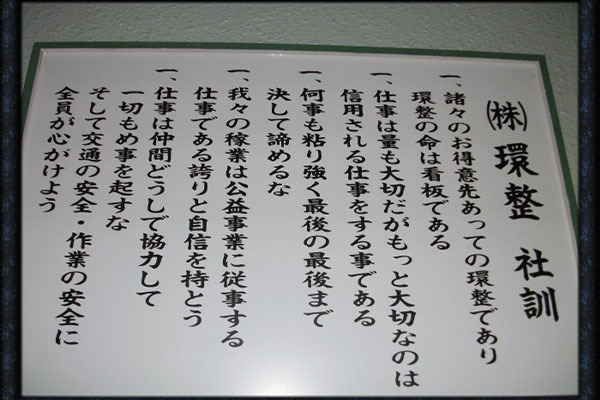 ㈱環整 社訓
一、諸々のお得意先あっての環整であり
環整の命は看板である
一、仕事は量も大切だがもっと大切なのは
信用される仕事をする事である
一、何事も粘り強く最後の最後まで
決して諦めるな
一、我々の稼業は公益事業に従事する
仕事である誇りと自信を持とう
一、仕事は仲間どうしで協力して
一切もめ事を起すな
そして交通の安全・作業の安全に
全員が心がけよう